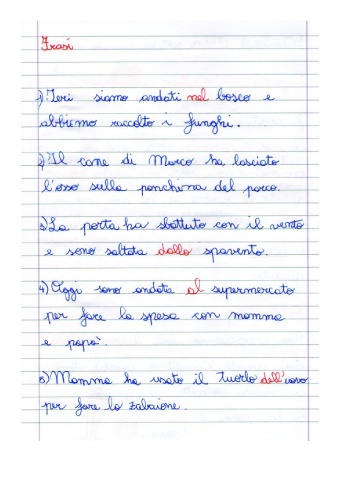 Frasi
1) Ieri siamo andati nel bosco e
abbiamo raccolto i funghi.
2) Il cane di Marco ha lasciato
l'osso sulla panchina del parco.
3) La porta ha sbattuto con il vento
e sono saltata dallo spavento.
4) Oggi sono andata al supermercato
per fare la spesa con mamma
e papà.
5) Mamma ha usato il tuorlo dell'uovo
per fare lo zabaione.